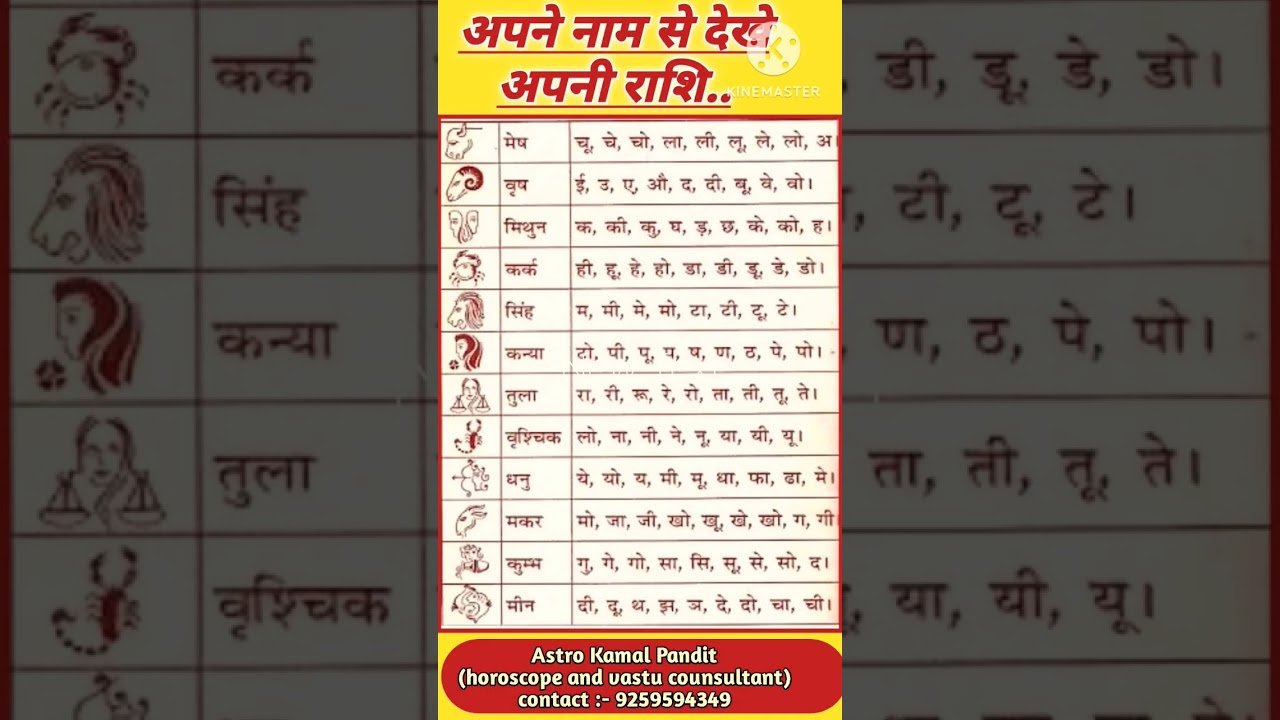 अपने नाम से देखे
अपनी राशि..
KINEMASTER
मेष चू, चे, चो, ला, ली, लू, ले, लो, अ।
वृष ई, उ, ए, औ, द, दी, बू, वे, वो।
मिथुन क, की, कु, घ, ड़, छ, के, को, ह।
कर्क ही, हू, हे, हो, डा, डी, डू, डे, डो।
सिंह म, मी, मे, मो, टा, टी, टू, टे।
कन्या टो, पी, पू, प, ष, ण, ठ, पे, पो।
तुला रा, री, रू, रे, रो, ता, ती, तू, ते।
वृश्चिक लो, ना, नी, ने, नू, या, यी, यू।
धनु ये, यो, य, मी, मू, धा, फा, ढा, मे।
मकर मो, जा, जी, खो, खू, खे, खो, ग, गी
कुम्भ गु, गे, गो, सा, सि, सू, से, सो, द।
मीन दी, दू, थ, झ, ञ, दे, दो, चा, ची।
Astro Kamal Pandit
(horoscope and vastu counsultant)
contact :- 9259594349
कर्क डी, डू, डे, डो।
सिंह टी, टू, टे।
कन्या ण, ठ, पे, पो।
तुला ता, ती, तू, ते।
वृश्चिक या, यी, यू।